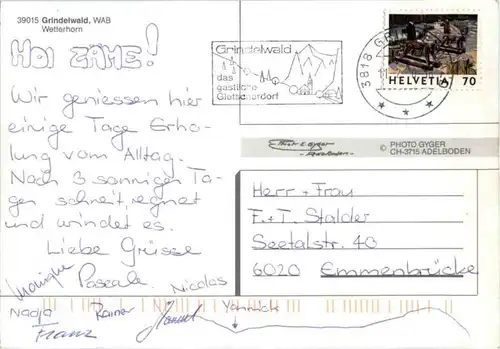 39015 Grindelwald, WAB
Wetterhorn
HOI ZÄME!
Wir geniessen hier
einige Tage Erho-
lung vom Alltag.
Nach 3 sonnigen Ta-
gen schneit, regnet
und windet es.
Liebe Grüsse
Monique Pascale Nicolas
Nadja Rainer Yannick
Franz
Grindelwald
das
gastliche
Gletscherdorf
3818
HELVETIA 70
© PHOTO GYGER
CH-3715 ADELBODEN
Herr + Frau
F.+T. Stalder
Seetalstr. 40
6020 Emmenbrücke